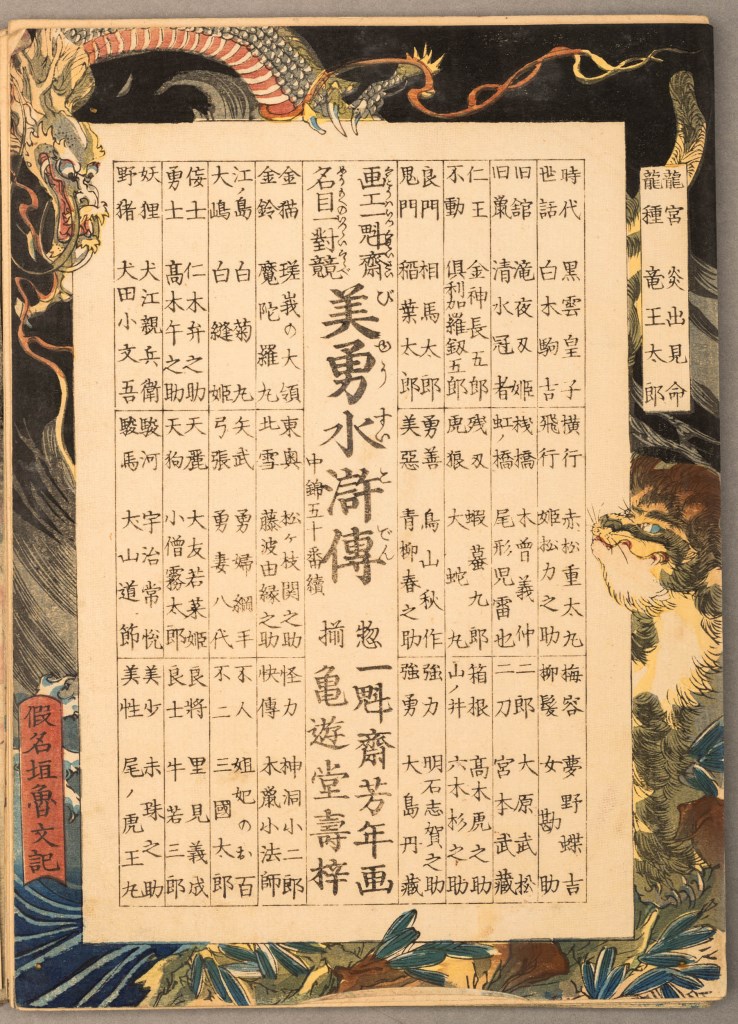 龍宮 炎出見命
龍種 竜王太郎
時代 黒雲皇子
世話 白木駒吉
旧舘 滝夜叉姫
旧巣 清水冠者
仁王 金神長五郎
不動 倶利加羅釼五郎
良門 相馬太郎
鬼門 稲葉太郎
横行 赤松重太丸
飛行 姫松力之助
桟橋 木曽義仲
虹ノ橋 尾形児雷也
残叉 蝦蟇九郎
虎狼 大蛇丸
勇善 鳥山秋作
美惡 青柳春之助
梅容 夢野蝶吉
柳髪 女勘助
二郎 大原武松
二刀 宮本武藏
箱根 髙木虎之助
山ノ井 六木杉之助
強力 明石志賀之助
強勇 大島丹藏
画工一魁齋
名目一對競
美勇水滸傳
びゆうすいこでん
中錦五十番續
惣
揃
一魁齋芳年画
亀遊堂壽梓
金猫 瑳峩の大領
金鈴 魔陀羅丸
江ノ島 白菊丸
大嶋 白縫姫
侫士 仁木弁之助
勇士 髙木午之助
妖狸 犬江親兵衛
野猪 犬田小文吾
東奥 松ヶ枝関之助
北雪 藤波由縁之助
矢武 勇婦綱手
弓張 勇妻八代
天麗 大友若菜姫
天狗 小僧霧太郎
駿河 宇治常悦
駿馬 大山道節
怪力 神洞小二郎
快傳 木鼠小法師
不人 妲妃のお百
不二 三國太郎
良將 里見義成
良士 牛若三郎
美少 赤珠之助
美性 尾ノ虎王丸
假名垣魯文記